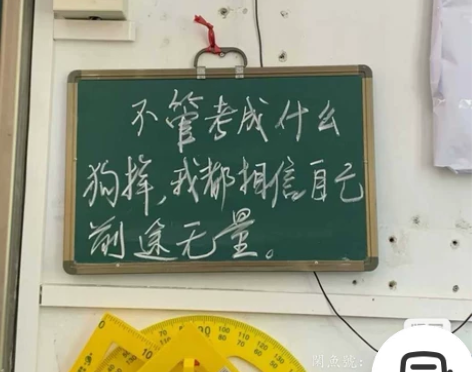 不管考成什么
狗样，我都相信自己
前途无量。
闲鱼号：